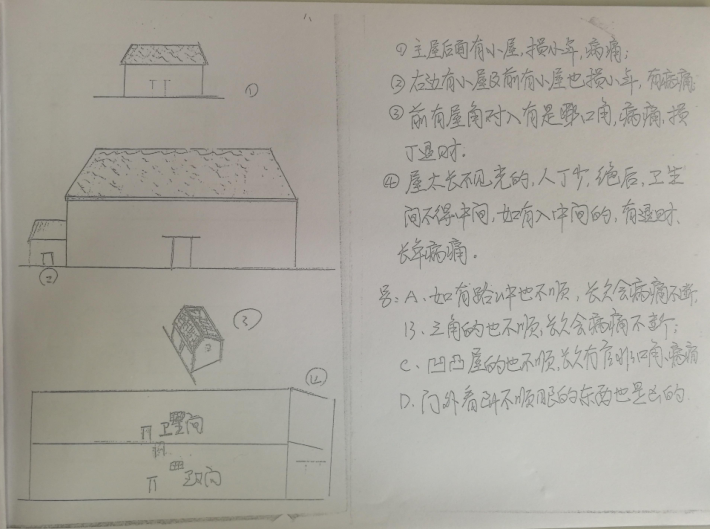 ①
②
③
④
卫生间
①主屋后面有小屋,损小年,病痛;
②右边有小屋及前有小屋也损小年,有病痛
③前有屋角对入有是非口角,病痛,损
丁退财.
④屋太长不见光的,人丁少,绝后,卫生
间不得中间,如有入中间的,有退财、
长年病痛.
A、如有路冲也不顺,长久会病痛不断,
B、三角的也不顺,长久会病痛不断;
C、凹凸屋的也不顺,长久有官非口角、病痛
D、门外看到不顺眼的东西也是凶的.